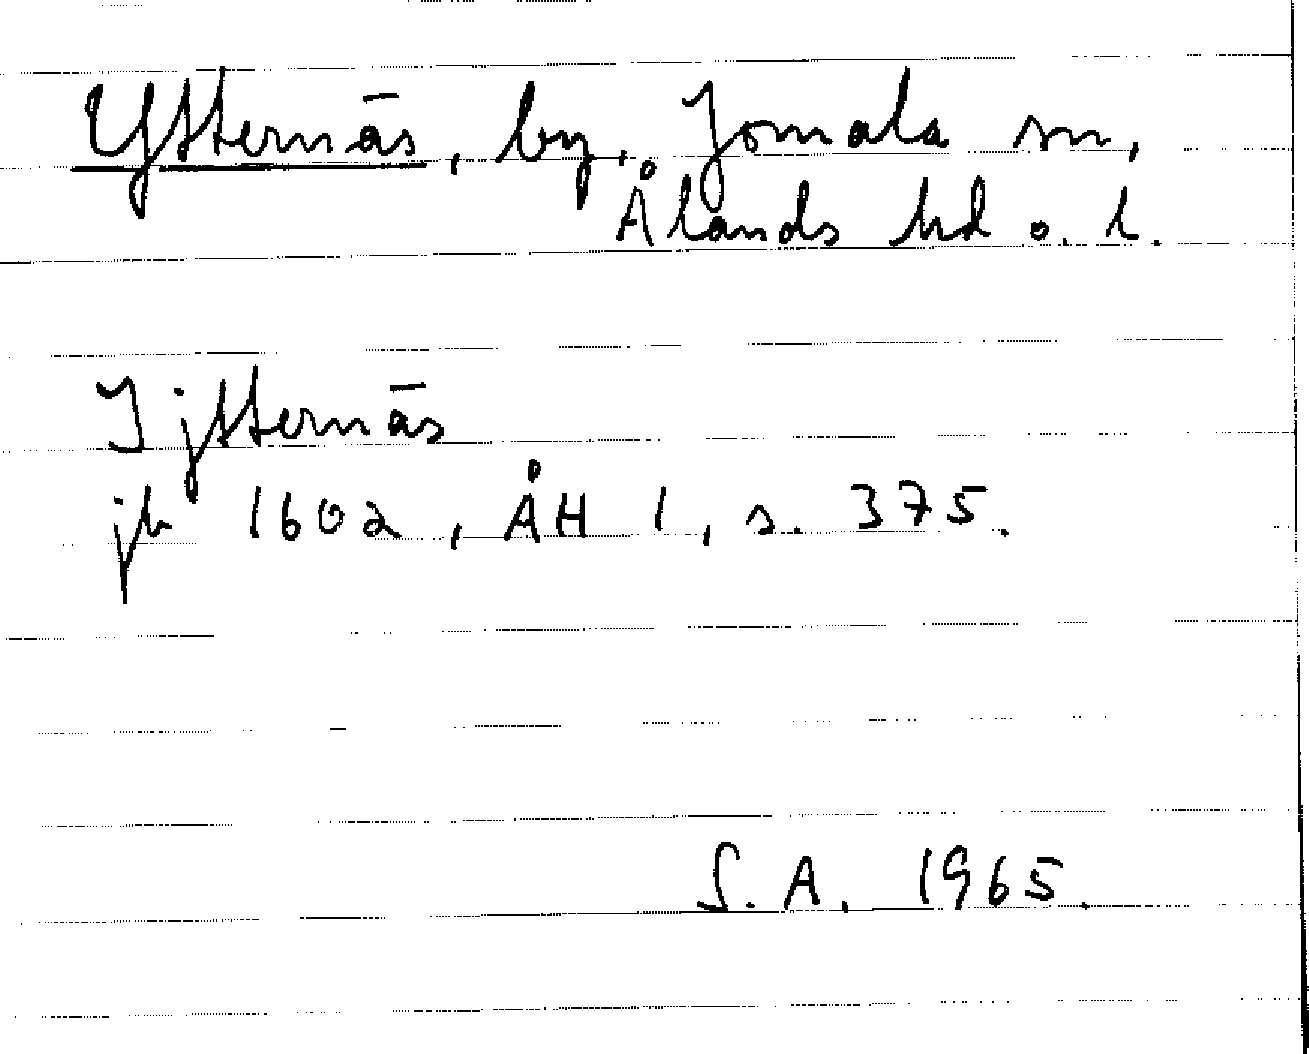 Ytternäs, by, Jomala sn,
Ålands hd o. l.
Ijtternäs
jb 1602, ÅH 1, s. 375.
S.A. 1965.